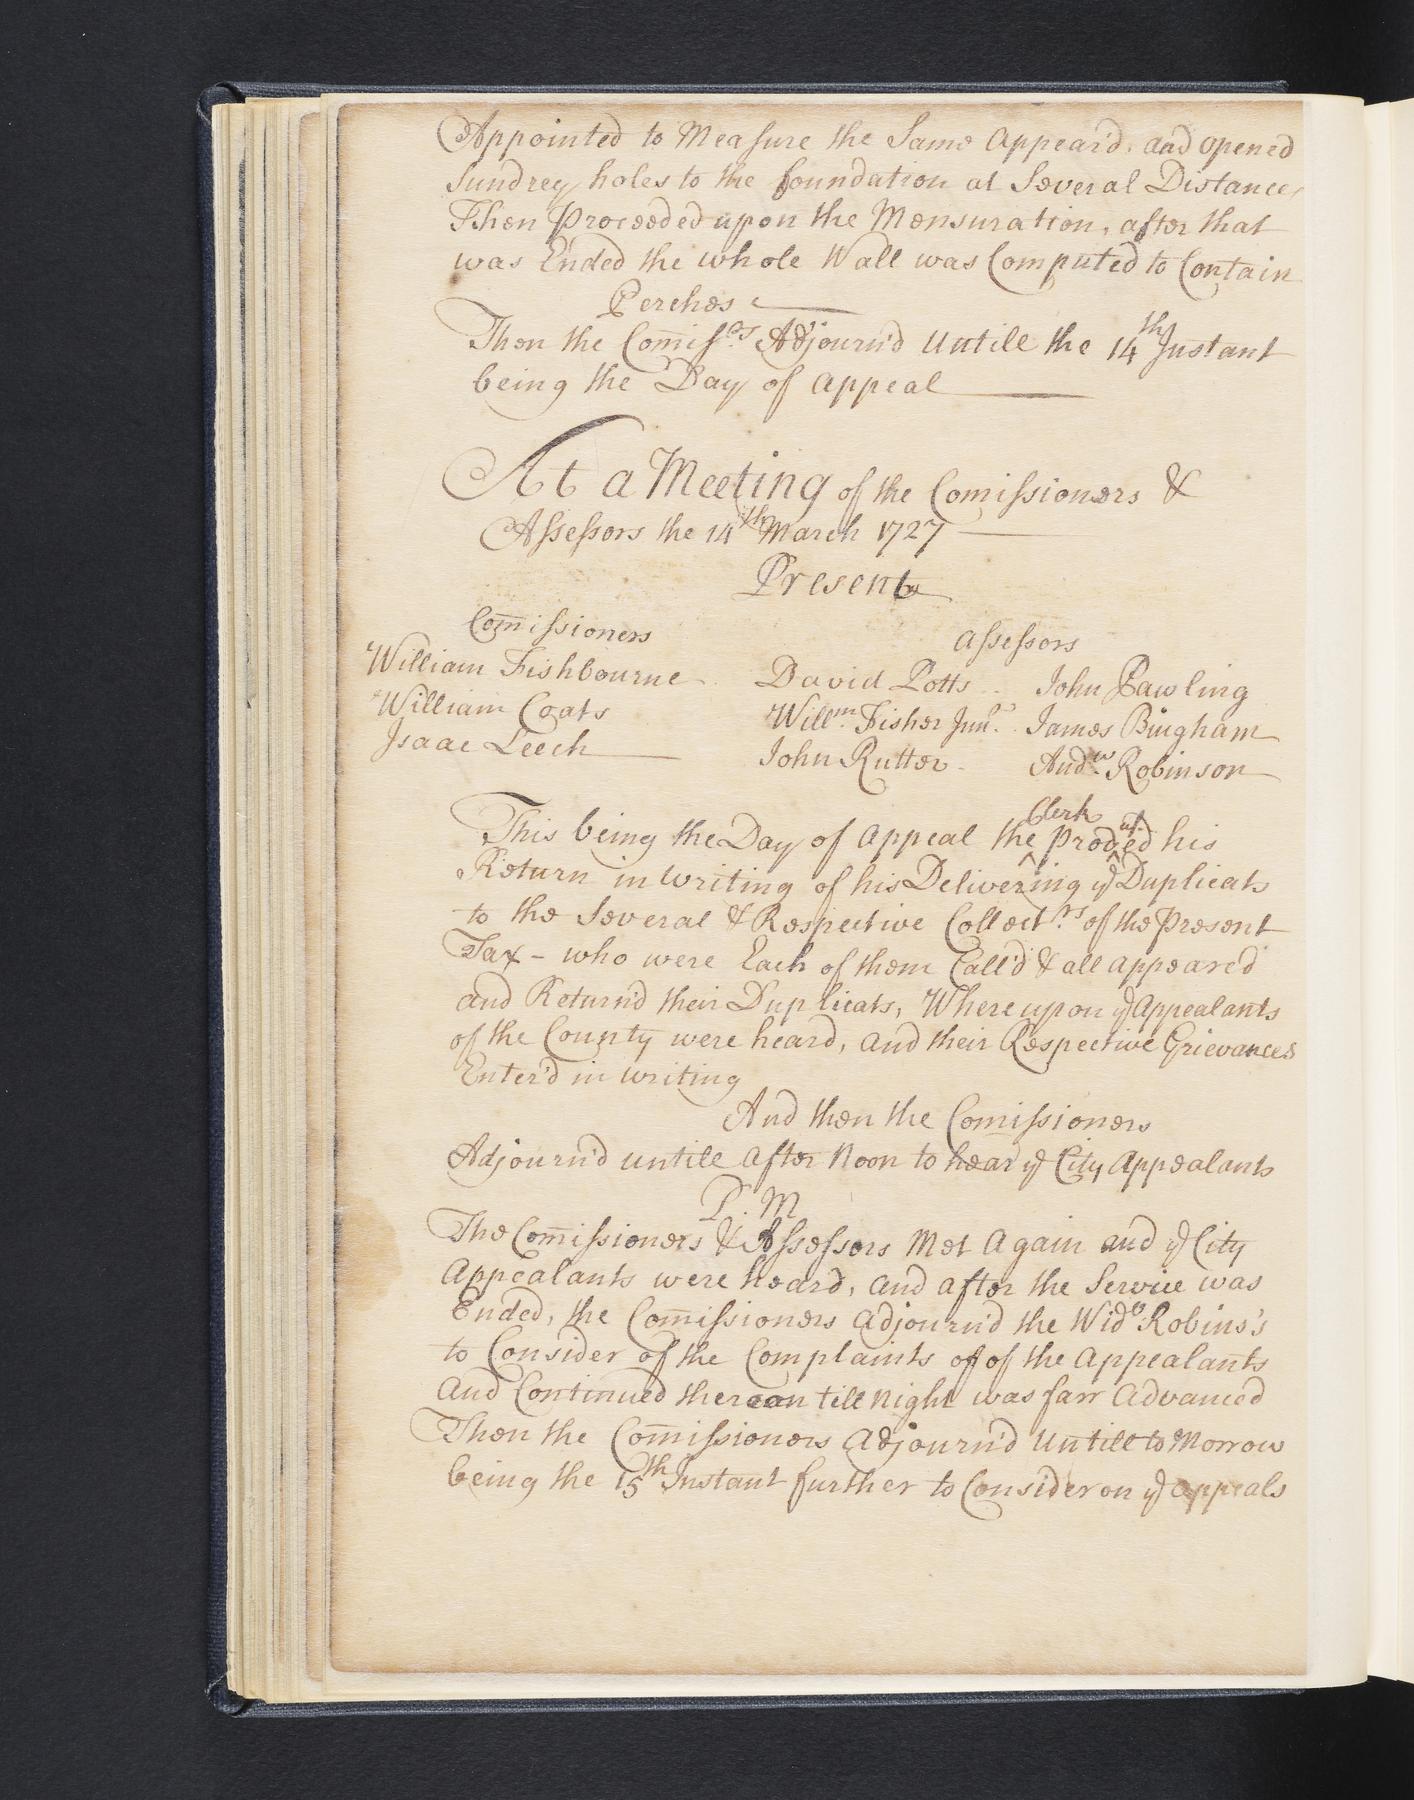 Appointed to Measure the Same Appear'd. and opened
Sundrey holes to the foundation at Several Distance,
Then Proceeded upon the Mensuration, after that
was Ended the whole Wall was Computed to Contain
Perches
Then the Com̄iss.rs Adjourn'd Untill the 14th Instant
being the Day of appeal
At a Meeting of the Comissioners &
Assessors the 14th March 1727
Present
Com̄issioners
Assessors
William Fishbourne David Potts John Pawling
William Coats Will.m Fisher Jun.r James Bingham
Isaac Leech John Rutter And.w Robinson
Clerk
This being the Day of appeal the ^ Prod^uc^ed his
Return in writing of his Delivering ye Duplicats
to the Several & Respective Collect.rs of the Present
Tax - who were Each of them Call'd & all appeared
and Return'd their Duplicats, Whereupon ye Appealants
of the County were heard, and their Respective Grievances
Enter'd in writing
And then the Comissioners
Adjourn'd untill after Noon to hear ye City Appealants
P. M
The Com̄issioners & Assessors Met Again and ye City
Appealants were heard, and after the Service was
Ended, the Com̄issioners adjourn'd the Wido Robins's
to Consider of the Complaints of of the appealants
and Continued thereon till night was farr advanced
Then the Com̄issioners Adjourn'd Untill to Morrow
being the 15th Instant further to Consider on ye appeals